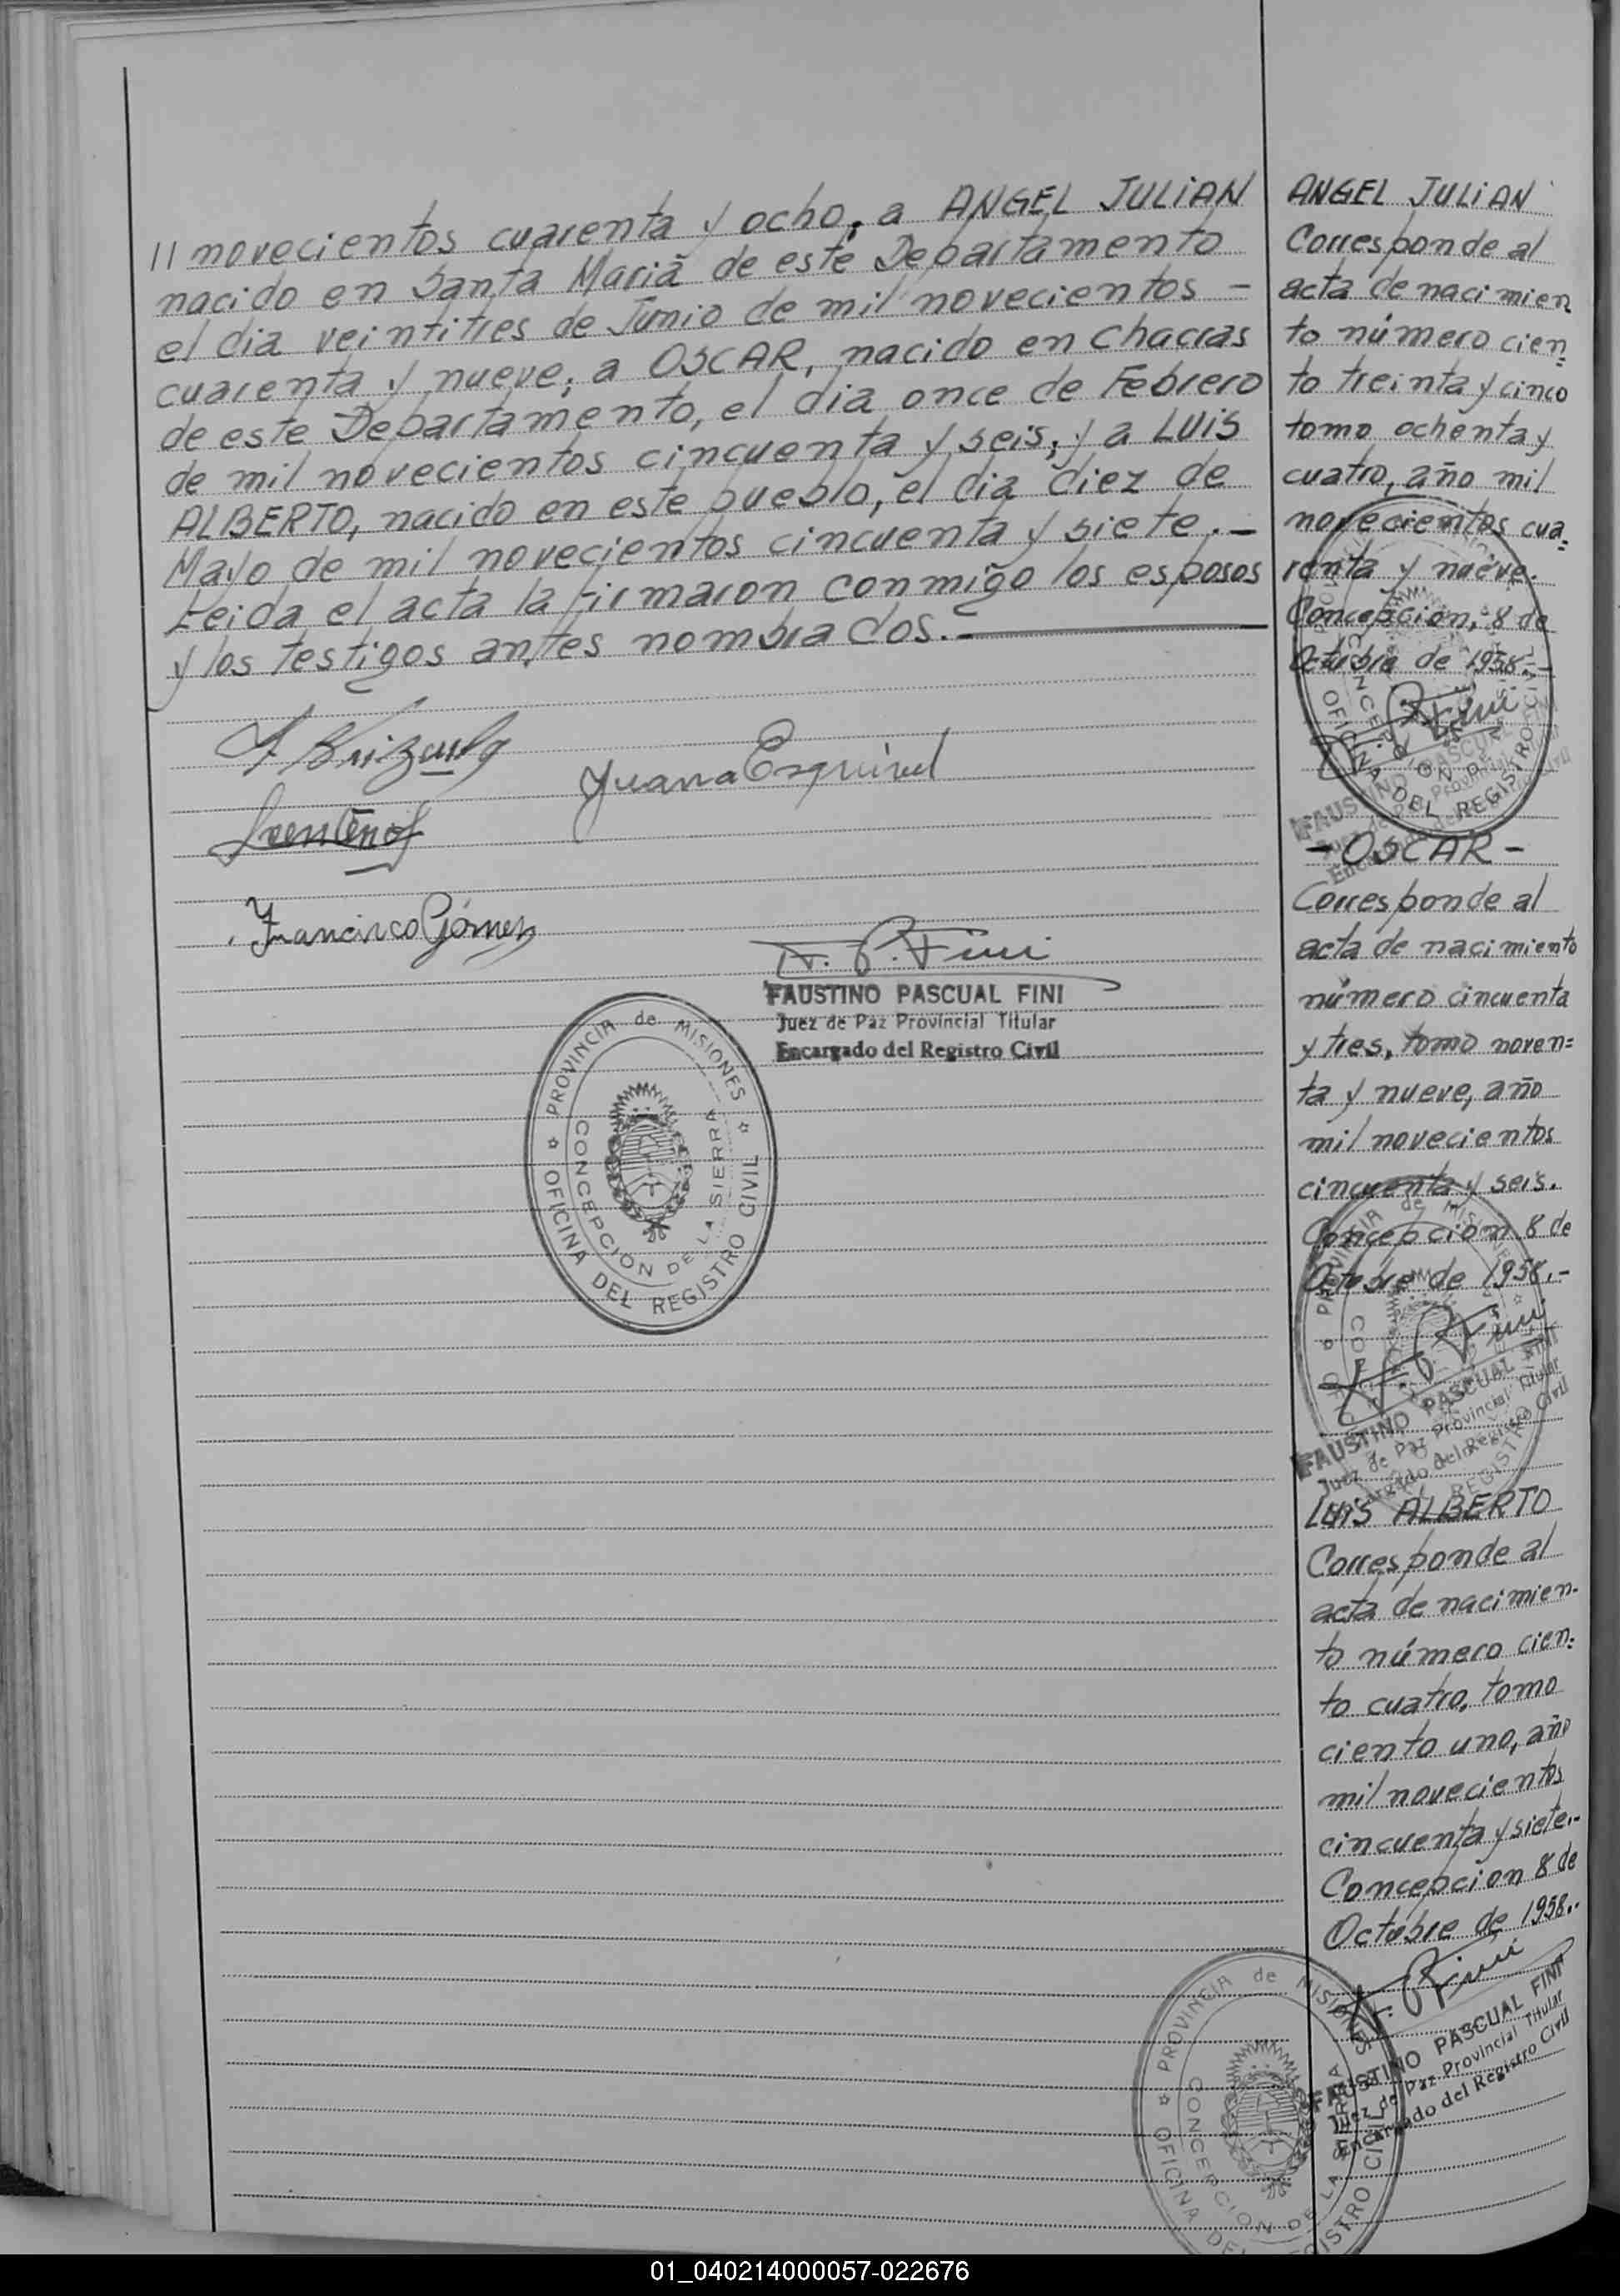 // novecientos cuarenta y ocho, a ANGEL JULIAN
nacido en Santa Maria de este Departamento
el dia veintitres de Junio de mil novecientos -
cuarenta y nueve; a OSCAR, nacido en Chacras
de este Departamento, el dia once de Febrero
de mil novecientos cincuenta y seis; y a LUIS
ALBERTO, nacido en este pueblo, el dia diez de
Mayo de mil novecientos cincuenta y siete.-
Leida el acta la firmaron conmigo los esposos
y los testigos antes nombrados.-
Juana Esquivel
Francisco Gómez
F. P. Fini
FAUSTINO PASCUAL FINI
Juez de Paz Provincial Titular
Encargado del Registro Civil
PROVINCIA de MISIONES
CONCEPCIÓN DE LA SIERRA
OFICINA DEL REGISTRO CIVIL
ANGEL JULIAN
Corresponde al
acta de nacimien
to número cien=
to treinta y cinco
tomo ochenta y
cuatro, año mil
novecientos cua=
renta y nueve.
Concepcion, 8 de
Octubre de 1958.-
OFICINA DEL REGISTRO
FAUSTINO PASCUAL FINI
- OSCAR -
Corresponde al
acta de nacimiento
número cincuenta
y tres, tomo noven=
ta y nueve, año
mil novecientos
cincuenta y seis.
Concepcion 8 de
Octubre de 1958.-
FAUSTINO PASCUAL FINI
Juez de Paz Provincial Titular
Encargado del Registro Civil
LUIS ALBERTO
Corresponde al
acta de nacimien-
to número cien=
to cuatro, tomo
ciento uno, año
mil novecientos
cincuenta y siete.-
Concepcion 8 de
Octubre de 1958..
F. P. Fini
FAUSTINO PASCUAL FINI
Juez de Paz Provincial Titular
Encargado del Registro Civil
PROVINCIA de MISIONES
CONCEPCIÓN DE LA SIERRA
OFICINA DEL REGISTRO CIVIL
01_040214000057-022676